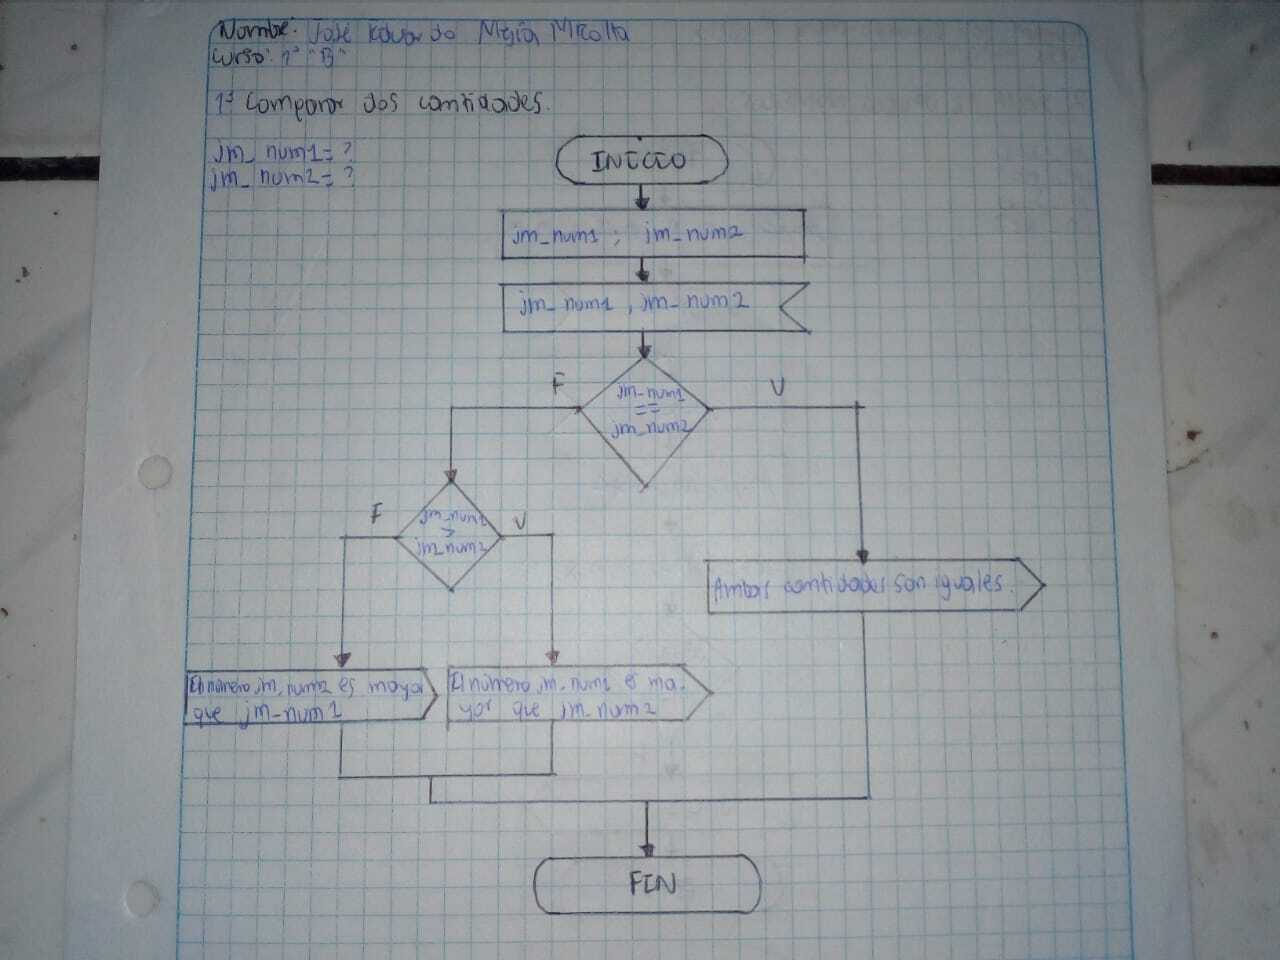 Nombre: José Eduardo Mejía Micolta
Curso: 1º "B"
1º Comparar dos cantidades.
jm_num1=?
jm_num2=?
INICIO
jm_num1; jm_num2
jm_num1, jm_num2
F
V
jm_num1
==
jm_num2
F
V
jm_num1
>
jm_num2
Ambas cantidades son iguales.
El número jm_num2 es mayor
que jm_num1
El número jm_num1 es ma-
yor que jm_num2
FIN